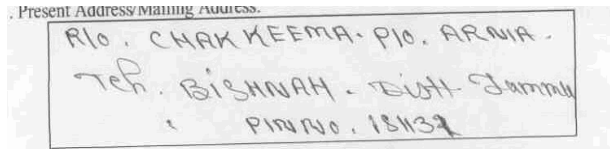 . Present Address/Mailing Address.
R/o. CHAK KEEMA. P/O. ARNIA.
Teh. BISHNAH. Distt Jammu
PIN NO. 181132